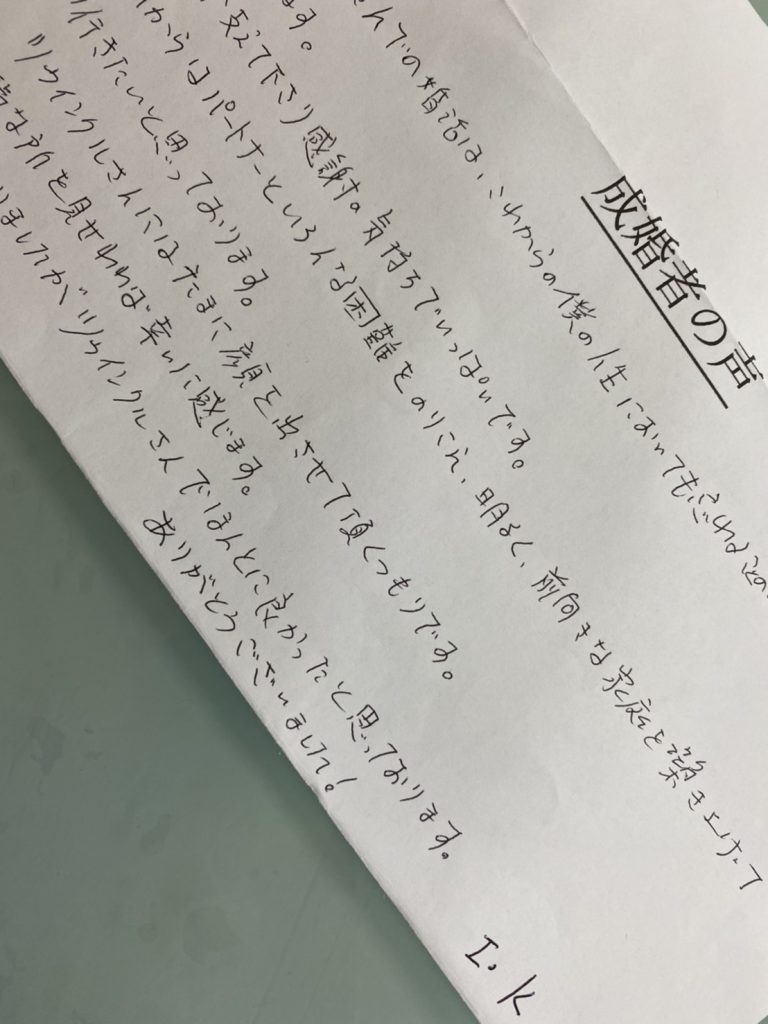 成婚者の声
んでの婚活は、これからの僕の人生においても忘れることの
ます。
支えて下さり感謝の気持ちでいっぱいです。
からはパートナーといろんな困難をのりこえ、明るく、前向きな家庭を築き上げて
行きたいと思っております。
ツヴィンクルさんにはたまに顔を出させて頂くつもりです。
な所を見せれれば幸いに感じます。
ましたがツヴィンクルさんでほんとに良かったと思っております。
ありがとうございました！
I.K